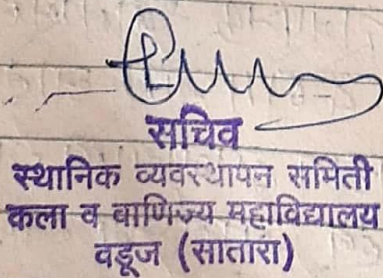 सचिव
स्थानिक व्यवस्थापन समिती
कला व वाणिज्य महाविद्यालय
वडूज (सातारा)